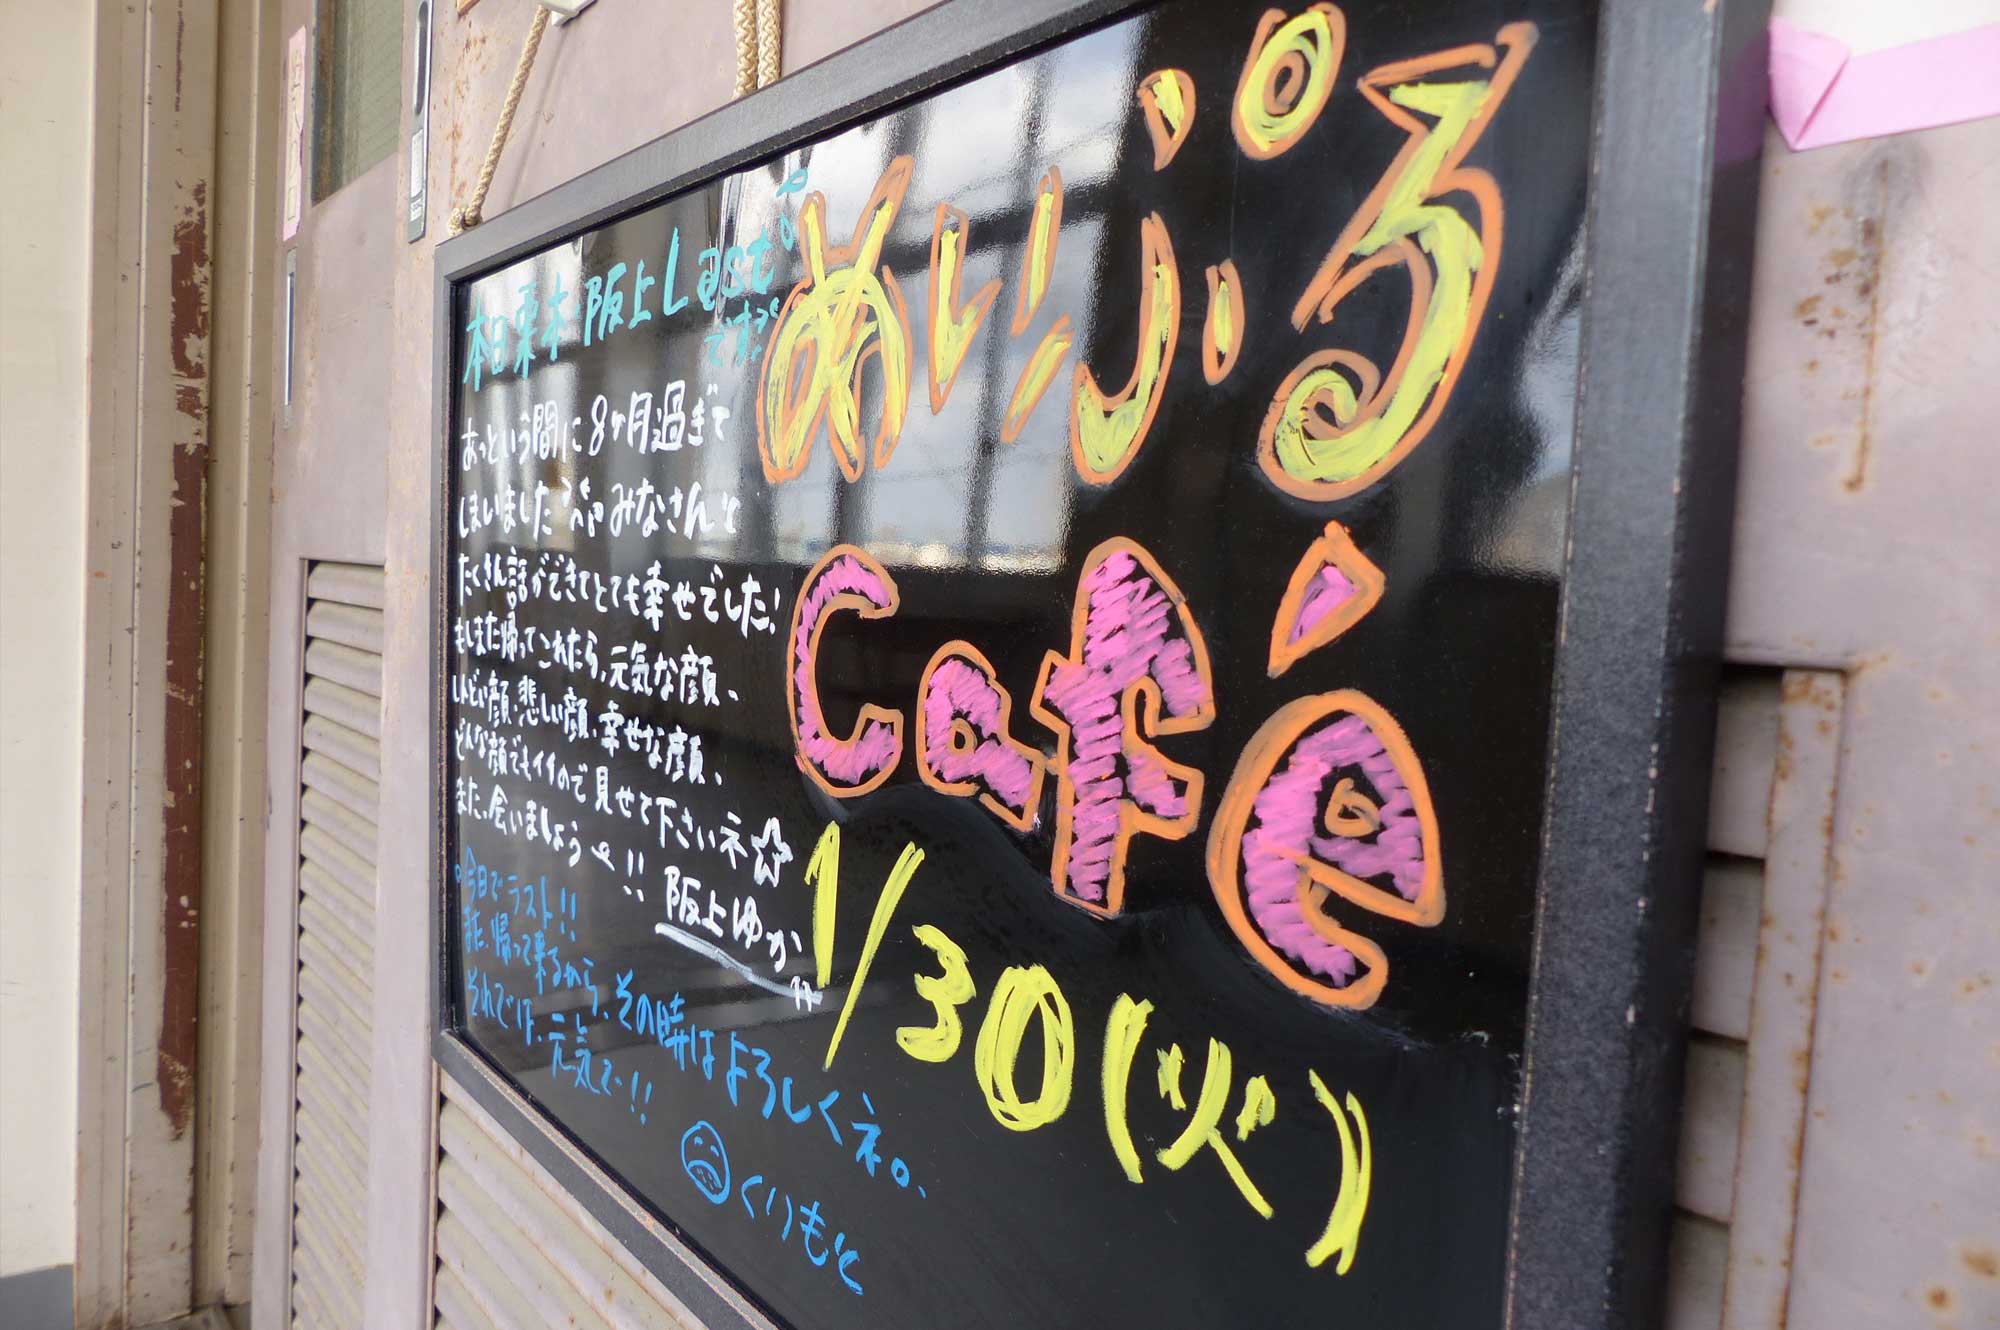 めいぷる
Café
1/30(火)
本日栗本 阪上Last
です。
あっという間に8ヶ月過ぎて
しまいました みなさんと
たくさん話ができてとても幸せでした!
もしまた帰ってこれたら、元気な顔、
しんどい顔、悲しい顔、幸せな顔、
どんな顔でもイイので見せて下さいネ☆
また、会いましょう!!
阪上ゆか
今日でラスト!!
また、帰って来るから、その時はよろしくネ。
それでは、元気で!!
くりもと